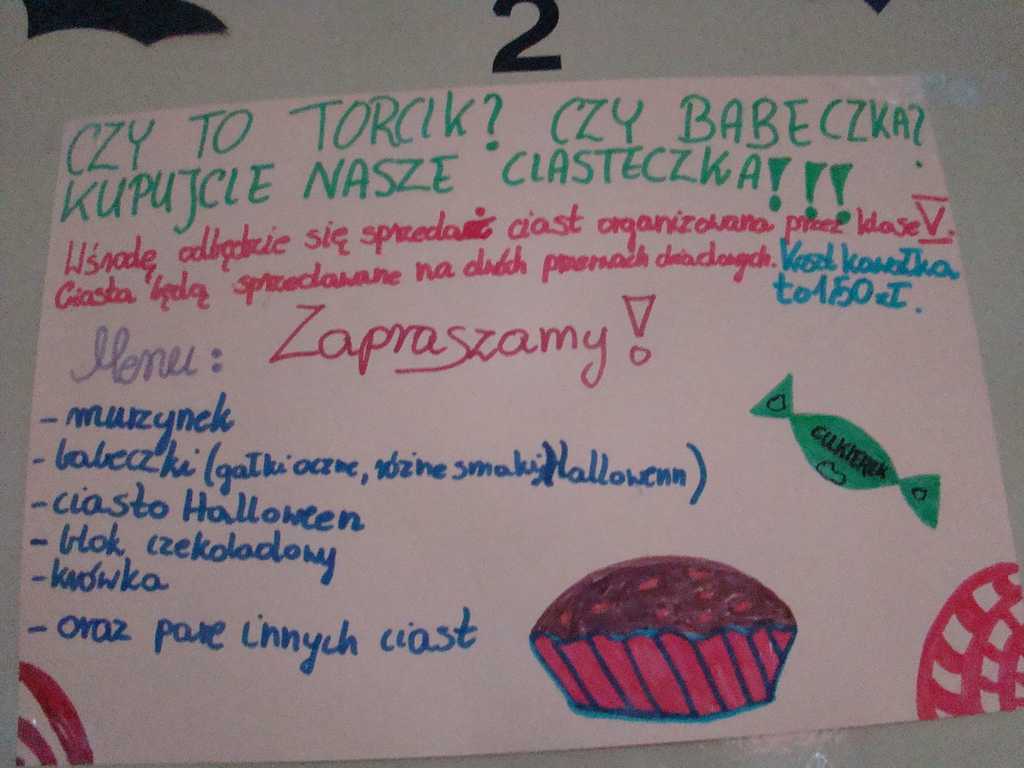 2
CZY TO TORCIK? CZY BABECZKA?
KUPUJCIE NASZE CIASTECZKA!!!
Wśrodę odbędzie się sprzedaż ciast organizowana przez klase V.
Ciasta będą sprzedawane na dwóch przerwach obiadowych. Koszt kawałka
to 1,50 zł.
Zapraszamy!
Menu:
- murzynek
- babeczki (gałki oczne, różne smaki, Hallowenn)
- ciasto Halloween
- blok czekoladowy
- krówka
- oraz parę innych ciast
CUKIEREK